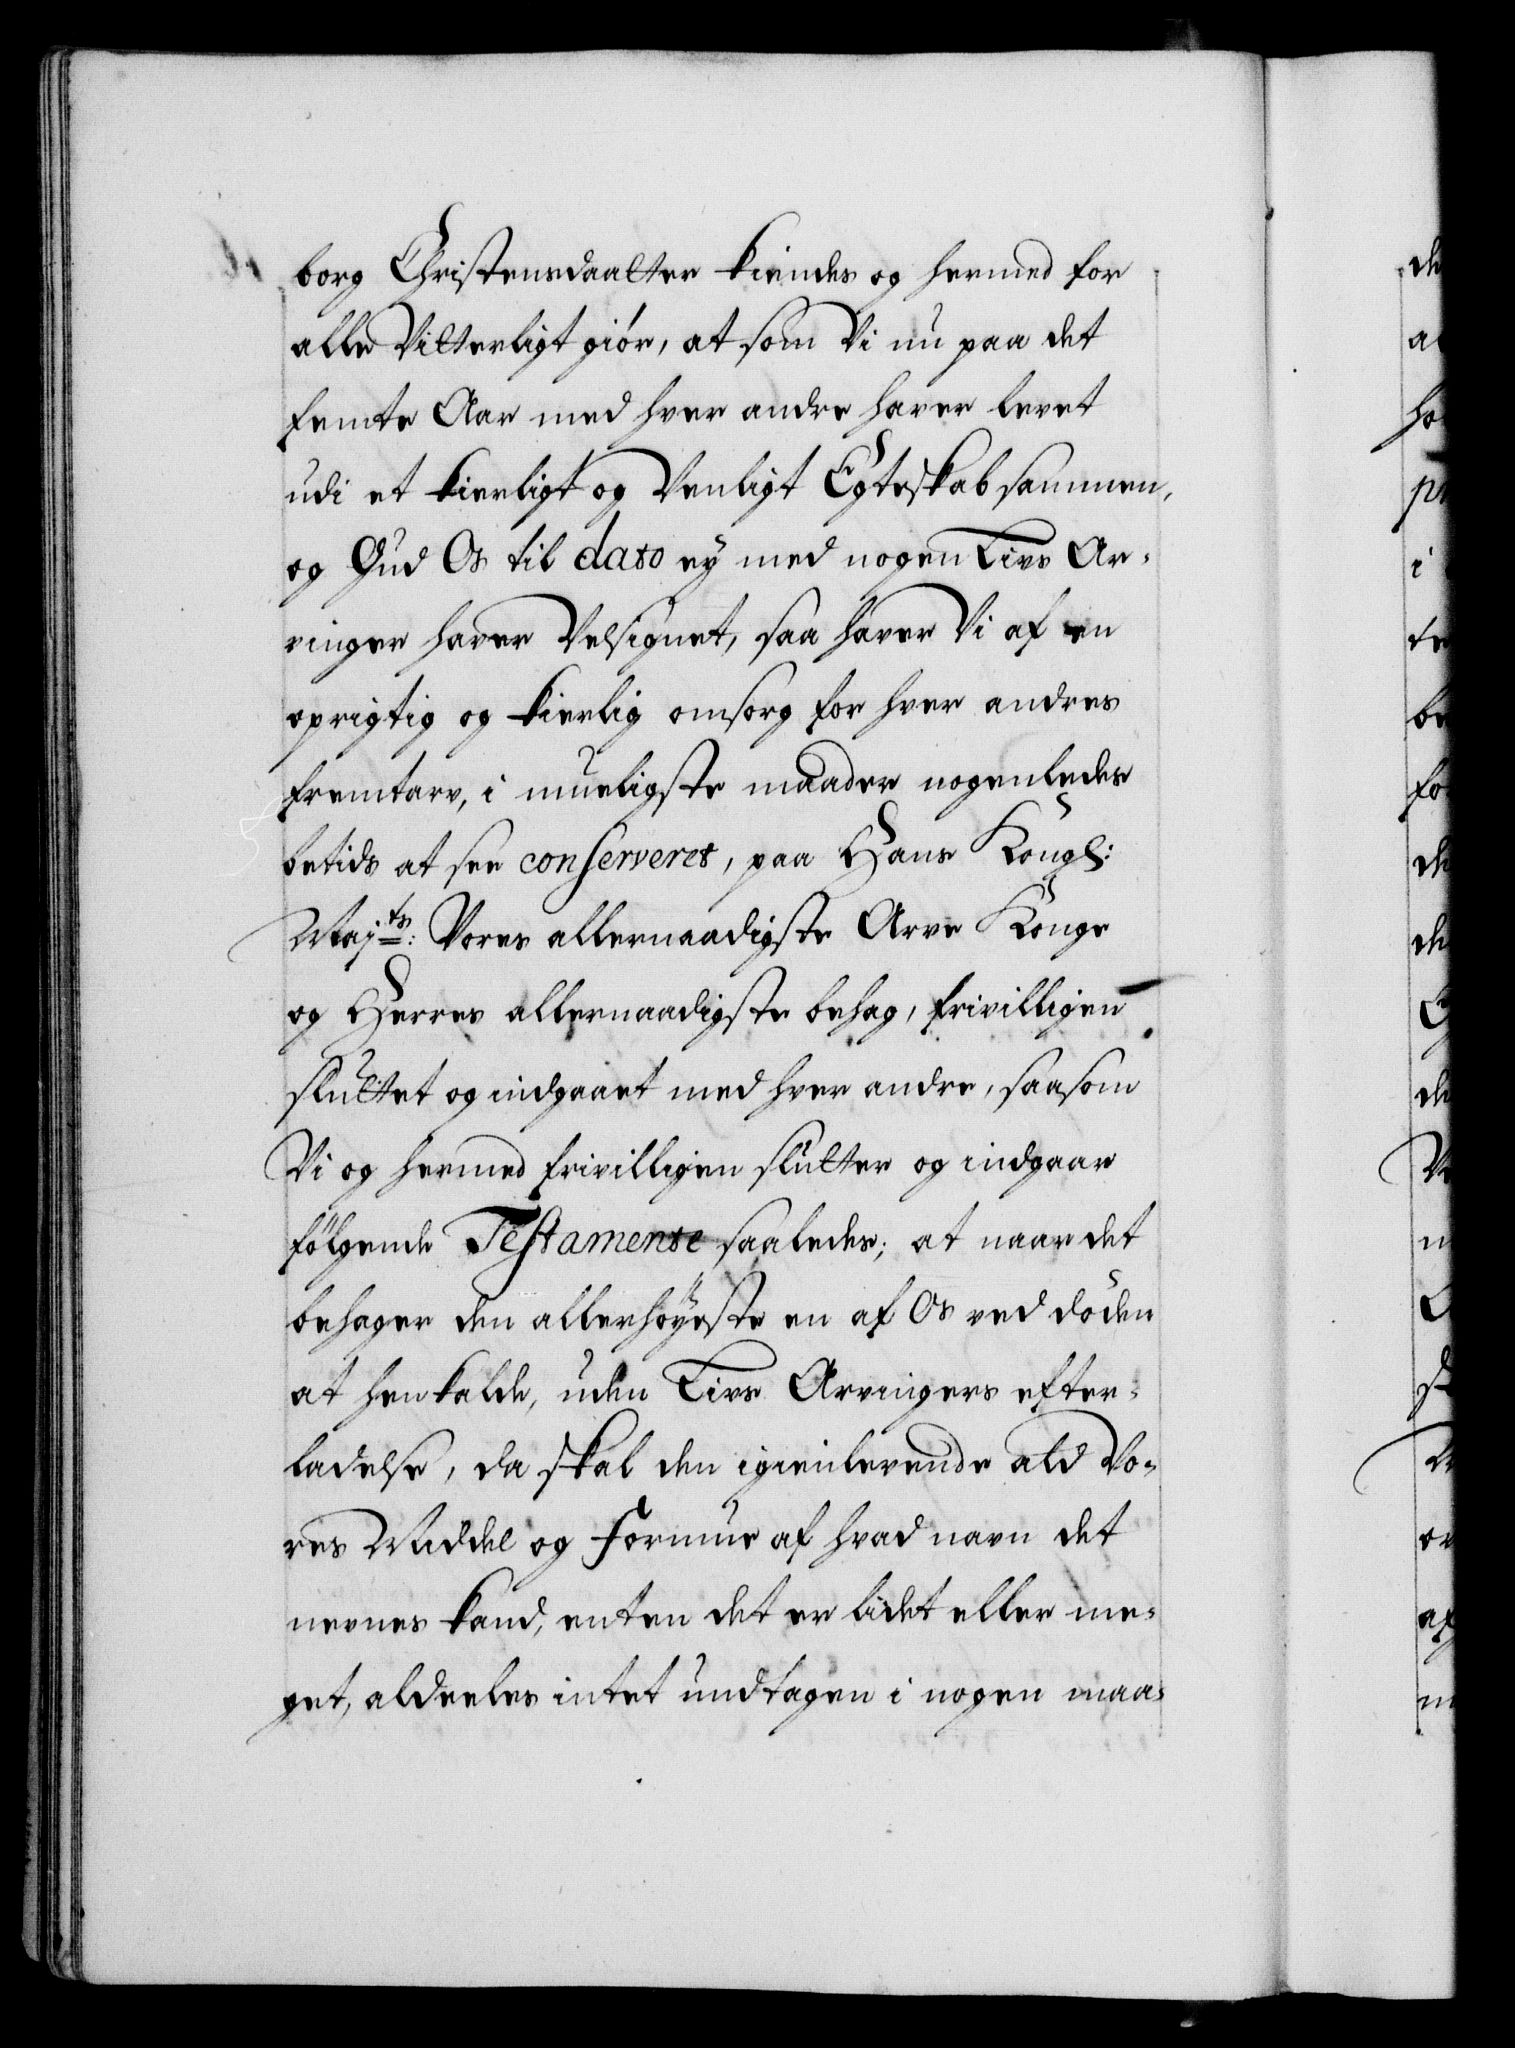 borg Christensdaatter kiendes og hermed for
alle Vitterligt giør, at som Vi nu paa det
femte Aar med hver andre haver levet
udi et kierligt og Venligt Egteskab sammen,
og Gud Os til dato ey med nogen Livs Ar-
vinger haver Velsignet, saa haver Vi af en
oprigtig og kierlig omsorg for hver andres
fremtarv, i mueligste maader nogenledes
betids at see conserveret, paa Hans Kongl:
Majts: Vores allernaadigste Arve Konge
og Herres allernaadigste behag, frivilligen
sluttet og indgaaet med hver andre, saasom
Vi og hermed frivilligen slutter og indgaar
følgende Testamente saaledes; at naar det
behager den allerhøyeste en af Os ved døden
at henkalde, uden Livs Arvingers efter-
ladelse, da skal den igienlevende ald Vo-
res Middel og Formue af hvad navn det
nevnes kand, enten det er lidet eller me-
get, aldeeles intet undtagen i nogen maa-